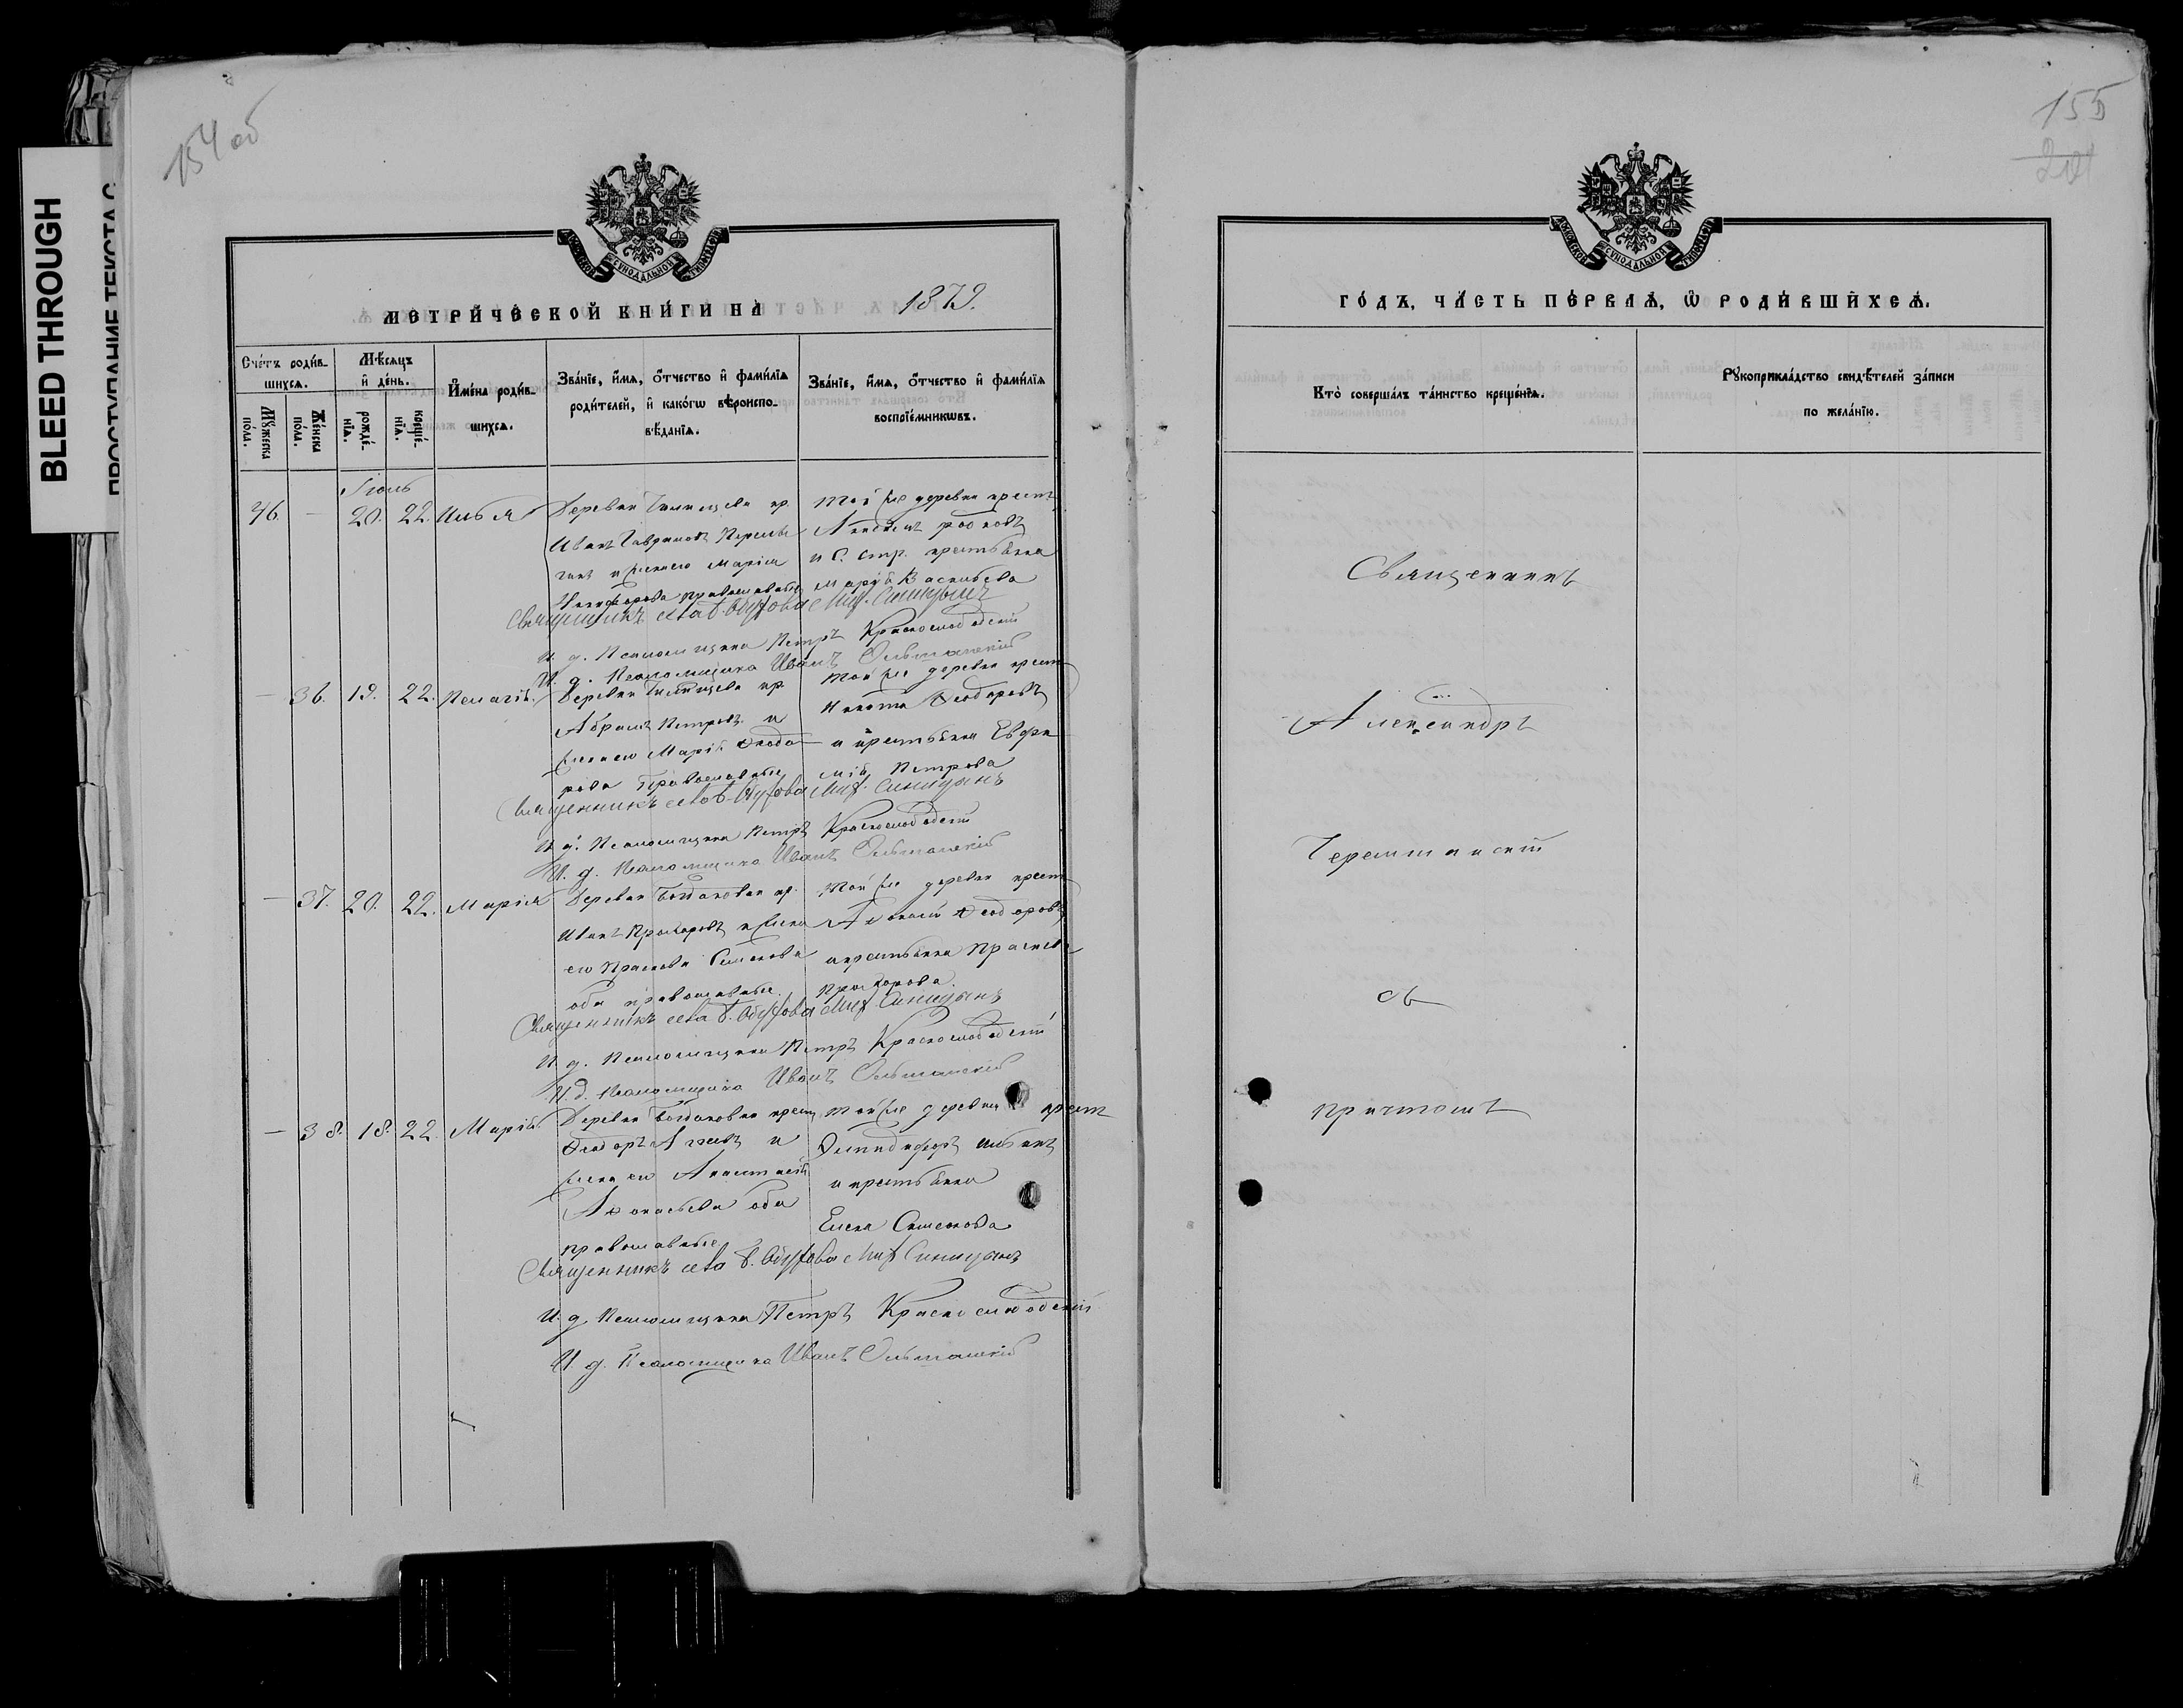 BLEED THROUGH
154 об
МЕТРИ́ЧЕСКОЙ КНИ́ГИ НА̀ 1879.
Сче́тъ роди́в-
шихсѧ.
Мꙋ́жеска по́ла.
Же́нска по́ла.
Мѣ́сѧцъ
и҆ де́нь.
рожде́-нїѧ.
креще́-нїѧ.
И҆мена̀ роди́в-
шихсѧ.
Зва́нїе, и҆́мѧ, ѻ҆́тчество и҆ фами́лїѧ
роди́телей, и҆ како́гѡ вѣроиспо-
вѣ́данїѧ.
Зва́нїе, и҆́мѧ, ѻ҆́тчество и҆ фами́лїѧ
воспрїе́мникѡвъ.
Іюль
46. — 20. 22. Илья
Деревни кр.
Иванъ Гавриловъ
и жена его Марія
Никифорова православные
Той же деревни крест.
и С. стр. крестьянка
Марія Васильева
Священникъ села Мих. Синицынъ
И. д. Псаломщика Петръ Краснослободскій
И. д. Псаломщика Иванъ Ольшанскій
— 36. 19. 22. Пелагія.
Деревни кр.
Абрамъ Петровъ и
жена его Марія Ѳеодо-
рова Православные
Той же деревни крест
Никита Ѳеодоровъ
и крестьянка Евфи
мія Петрова
Священникъ села Мих. Синицынъ
И. д. Псаломщика Петръ Краснослободскій
И. д. Псаломщика Иванъ Ольшанскій
— 37. 20. 22. Марія
Деревни Богдановки кр.
Иванъ Прохоровъ и жена
его Прасковья Семенова
оба православные.
Той же деревни крест
Аѳанасій Ѳеодоровъ
и крестьянка Праскева
Прохорова.
Священникъ села Мих. Синицынъ
И. д. Псаломщика Петръ Краснослободскій
И. д. Псаломщика Иванъ Ольшанскій
— 38. 18. 22. Марія
Деревни Богдановки крест
Ѳеодоръ и
жена его Анастасія
Аѳонасьева оба
православные
Той же деревни крест
и крестьянка
Елена Семенова
Священникъ села Мих Синицынъ
И. д. Псаломщика Петръ Краснослободскій
И. д. Псаломщика Иванъ Ольшанскій
155
ГО́ДЪ, ЧА́СТЬ ПЕ́РВАѦ, Ѽ РОДИ́ВШИХСѦ.
Кто̀ соверша́лъ та́инство креще́нїѧ.
Рꙋкоприкла́дство свидѣ́телей за́писи
по жела́нїю.
Священникъ
Александръ
Черемшанскій
съ
причтомъ